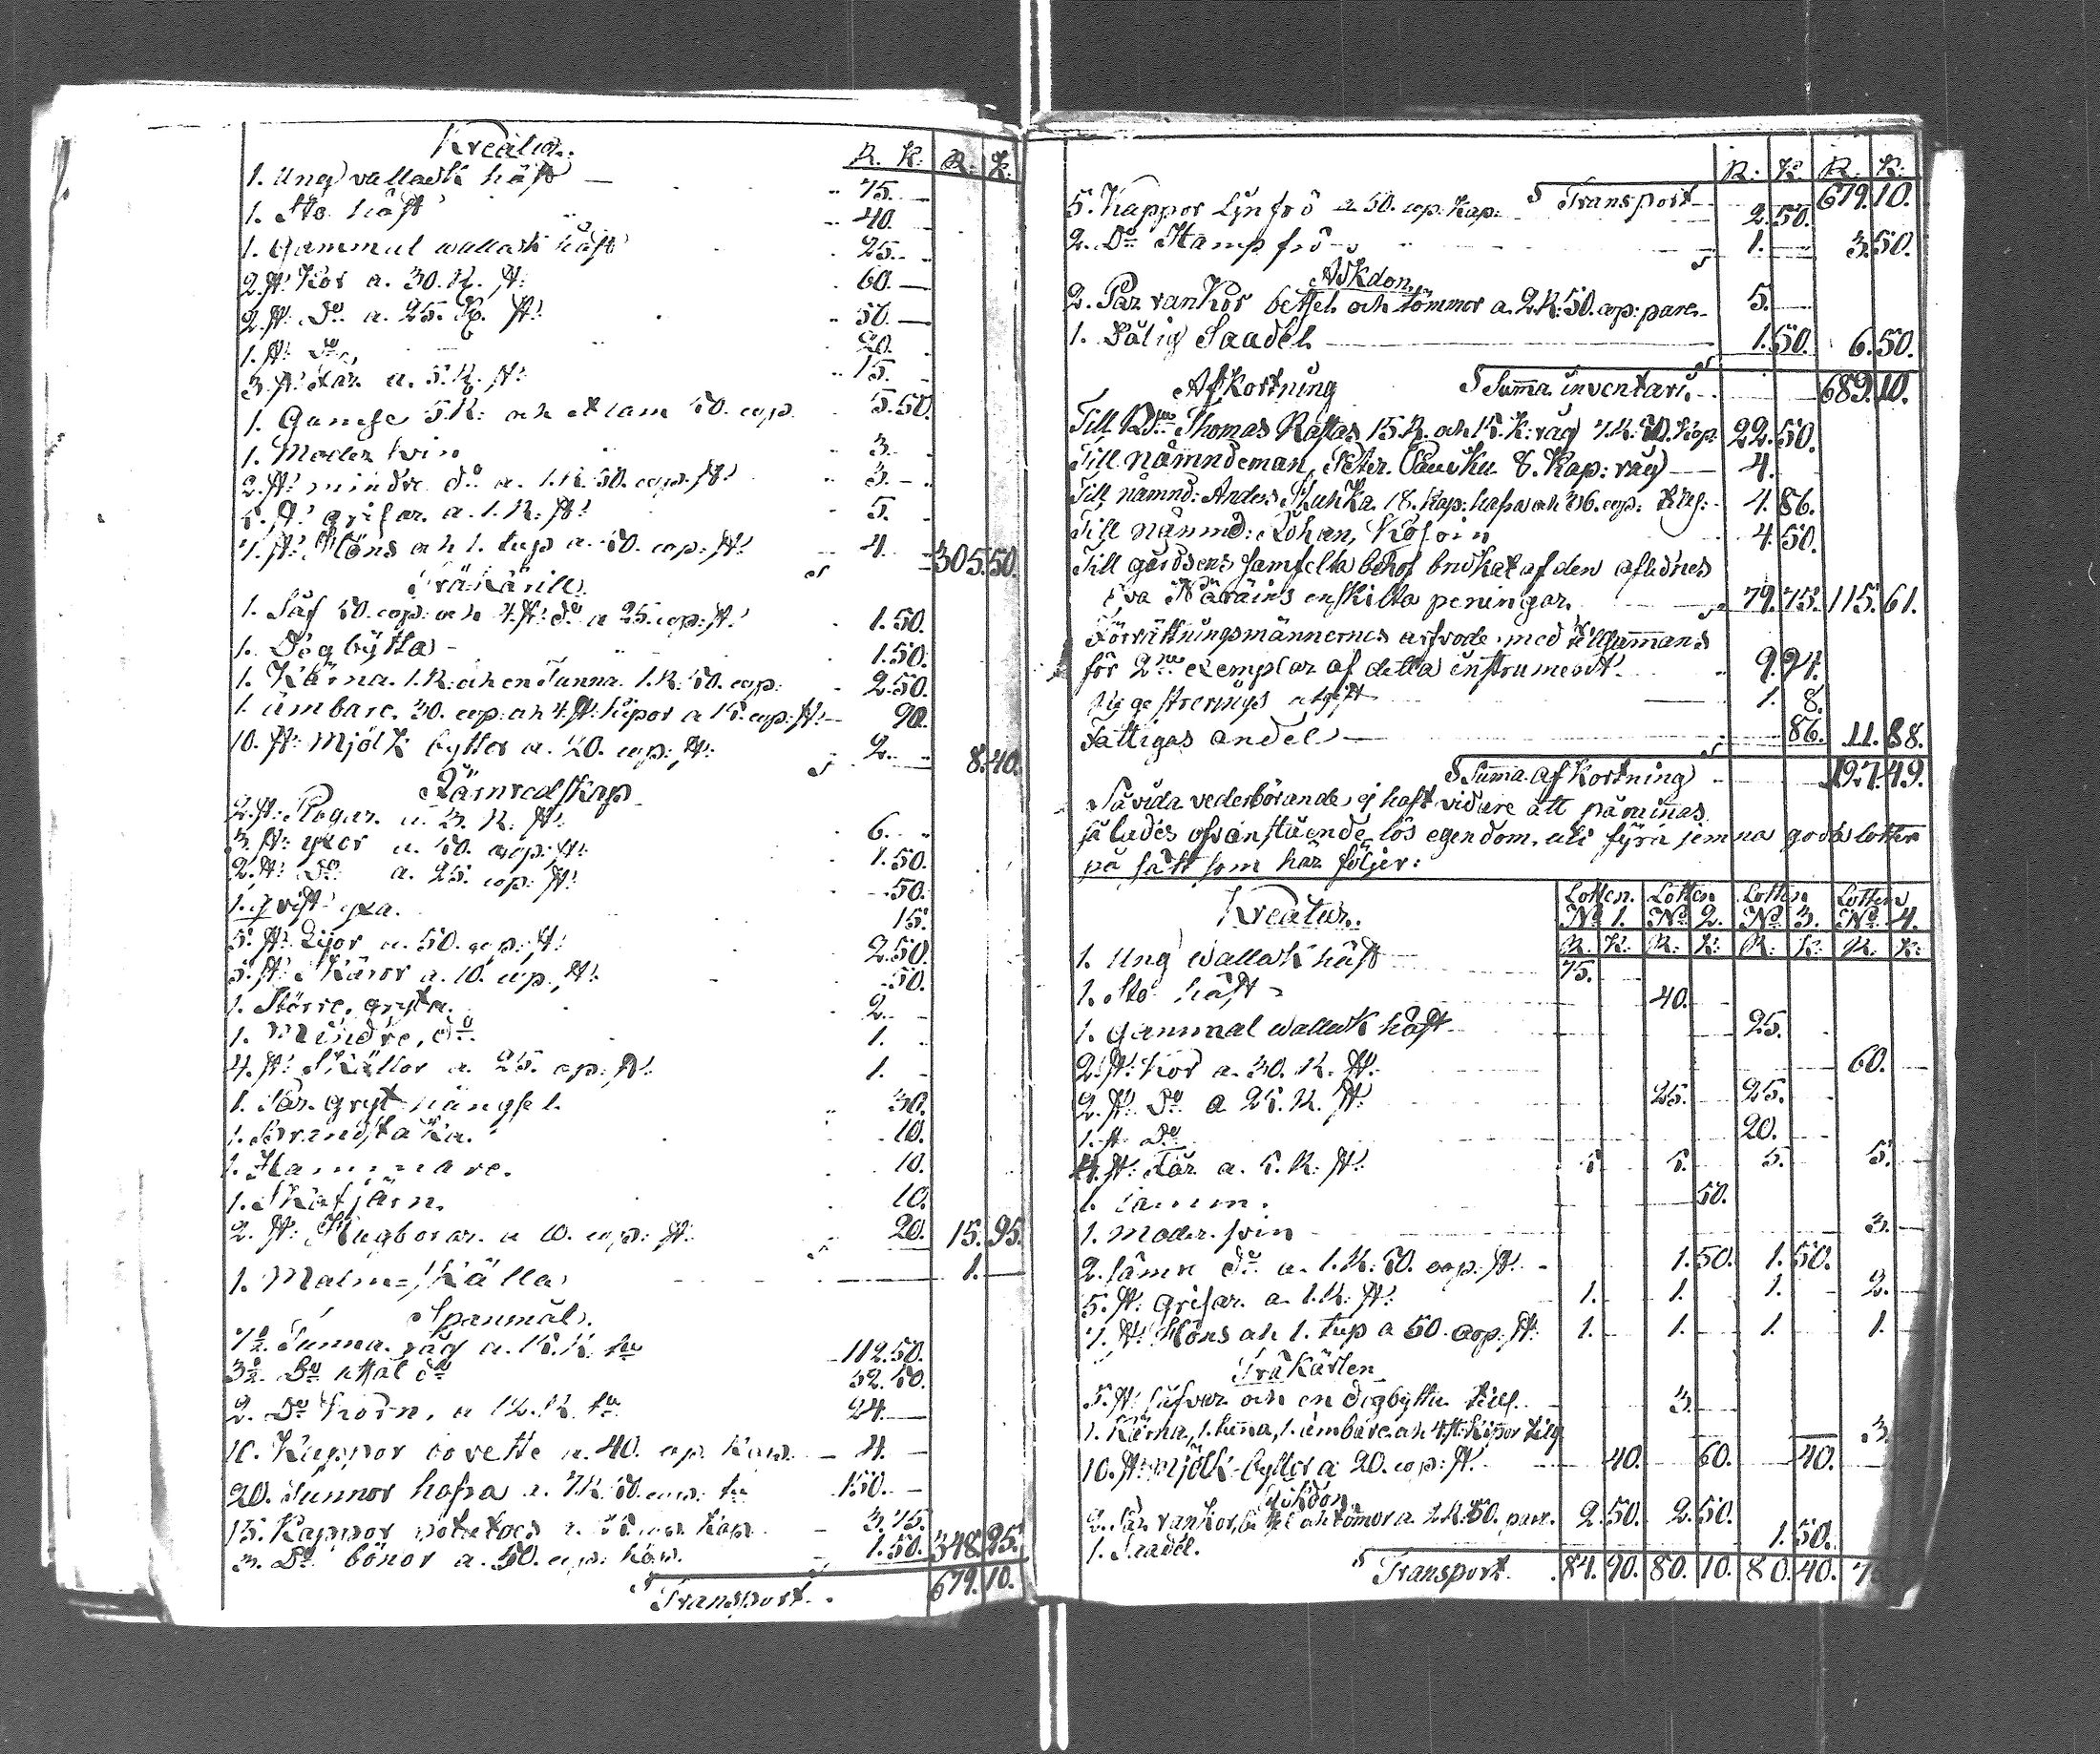 Kreatur.
R. K. R. K.
1. Ung vallack häst — 75. —
1. Sto häst 40.
1. gammal wallack häst 25.
2. st: Kor a. 30. R. st: 60. —
2. st: Do a. 25. Rp. st: 50. —
1. st: Do 20.
3. st: Får a. 5. R. st: 15.
1. Gumse 5 R: och et lam 50. cop. 5.50.
1. Moder svin 3.
2. st: mindre do a. 1. R. 50. cop. st: 3. —
5. st: grisar a. 1. R: st: 5.
7. st: Höns och 1. tup a. 50. cop: st: 4. 305.50.
Träkärill.
1. Såf 50. cop: och 4. st: do a 25. cop: st: 1.50.
1. Degbytta 1.50.
1. Kärna. 1. R: och en Tunna. 1. R: 50. cop: 2.50.
1. ämbare. 30. cop: och 4. st: kipor a 15. cop: st: 90.
10. st: Mjölk bytter a. 20. cop: st: 2. 8.40.
Järnredskap
2. st: Plogar a. 3. R. st: 6.
3. st: yxor a. 50. cop: st: 1.50.
2. st: Do a. 25. cop: st: 50.
1. qvist yxa. 15.
5. st: Lijor a. 50. cop: st: 2.50.
5. st: Skäror a. 10. cop. st: 50.
1. Större, gryta. 2.
1. Mindre, do 1.
4. st: Skällor a. 25. cop: st: 1.
1. Par. gryt hängsel. 30.
1. Brandstaka. 10.
1. Hammare. 10.
1. Skafjärn. 10.
2. st: Hugborar a 10. cop: st: 20. 15.95.
1. Malm=skälla 1. —
Spanmål.
7½. Tunna råg a. 15. R. tu 112.50.
3½. Do Mål do 52.50.
2. Do Korn, a 12. R. tu 24. —
10. Kappor a. 40. cop. kap. 4. —
20. Tunnor hafra a. 7 R. 50. cop: tu 150. —
15. Kappor potatoes a. 25 cop. Kap. 3.75.
3. Do bönor a. 50. cop: kap. 1.50. 348.25.
S Transport. 679.10.
R. K. R. K.
S Transport 679.10.
5. Kappor Lijnfrö a 50. cop. Kap: 2.50.
2. Do Hampfrö 1. — 3.50.
Åkdon.
2. Par rankor betsel och tömmor a. 2. R: 50. cop: pare. 5. —
1. Dålig Saadel 1.50. 6.50.
Afkortning S Summa inventari. 689.10.
Till Thomas Rastas 15. R. och 15. K: råg 7. R. 50. Kop 22.50.
Till nämndeman, Peter 8. Kap: råg — 4.
Till nämnd: Anders 18. Kap: hafra och 36. cop: 4.86.
Till nämnd: Johan, 4.50.
Till gårdsens samfelta behof brukat af den aflidnes
enskilta peningar. 79.75. 115.61.
Förrättningsmännernes arfvode med tillsammans
för 2ne exemplar af detta instrument. 9.94.
afgift — 1. 8.
Fattigas andel — 86. 11.88.
S Summa afkortning 127.49.
Såvida vederbörande ej haft vidare att påminnas
så lades ofvanstående lös egendom, uti fyra jemna goda lotter
på sätt som här följer:
Kreatur.
Lotten. Lotten Lotten Lotten
No 1. No 2. No 3. No 4.
R. K. R. K. R. K. R. K.
1. Ung Wallack häst 75.
1. Sto häst 40.
1. gammal wallack häst 25.
2. st: Kor a. 30. R. st: 60. —
2. st: Do a 25. R. st: 25. 25.
1. st Do 20.
4. st: Får a. 5. R: st: 5 5. 5. 5.
1. Lamm. 50.
1. Moder. svin 3. —
2. sämr do a. 1. R: 50. cop: st: 1.50. 1.50.
5. st: grisar a. 1. R: st: 1. 1. 1. 2.
7. st: Höns och 1. tup a 50. cop: st: 1. 1. 1. 1.
Träkärlen
5. st: såfvar och en degbytta till. 3.
1. Kärna, 1. tunna, 1. ämbare och 4. st: kipor tilg 3.
10. st: mjölk-bytter a 20. cop: st: 40. 60. 40.
Åkdon.
2. Par rankor, betsel och tömor a. 2. R. 50. pare. 2.50. 2.50.
1. Saadel. 1.50.
S Transport. 84.90. 80.10. 80.40.